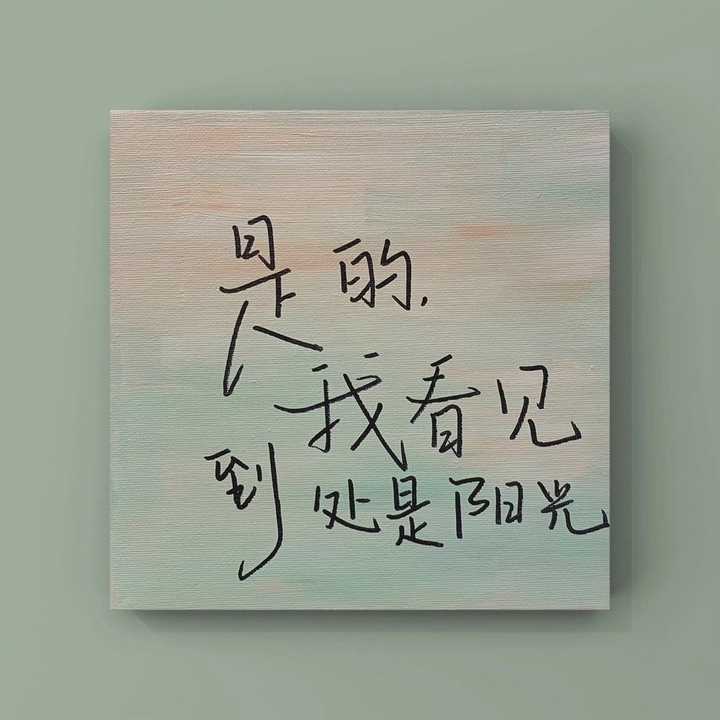 是的,
我看见
到处是阳光